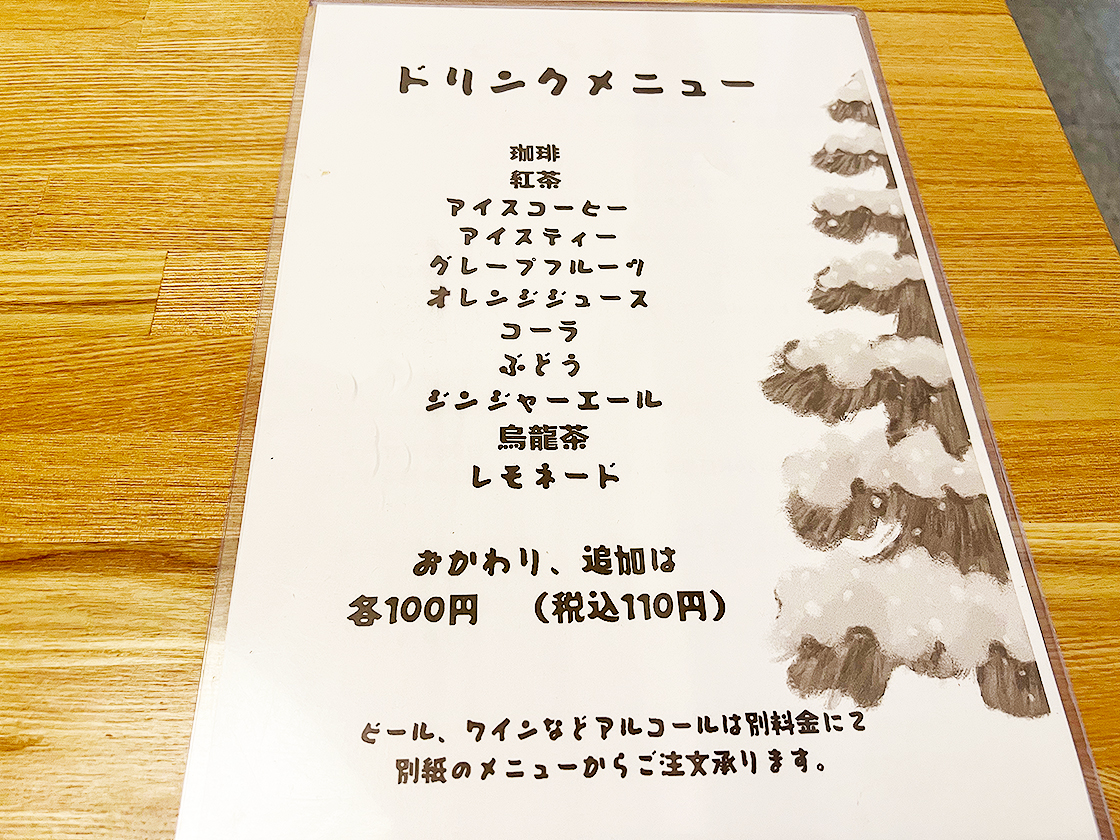 ドリンクメニュー
珈琲
紅茶
アイスコーヒー
アイスティー
グレープフルーツ
オレンジジュース
コーラ
ぶどう
ジンジャーエール
烏龍茶
レモネード
おかわり、追加は
各100円 (税込110円)
ビール、ワインなどアルコールは別料金にて
別紙のメニューからご注文承ります。